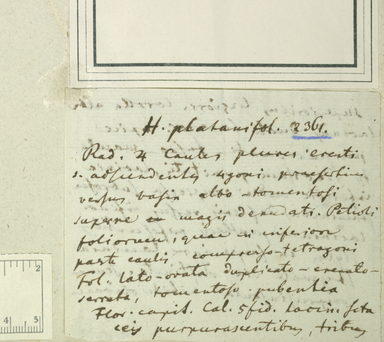 H. platanifol. 2361.
Rad. 4 Caules plures erecti
s. adscendentes 4goni praesertim
versus basin albo-tomentosi
superne magis denudati. Petioli
foliorum, quae in inferiore
parte caulis, compresso-tetragoni
Fol. lato-ovata duplicato-crenato-
serrata, tomentoso-pubentia
Flor. capit. Cal. 5fid. lacin. seta
ceis purpurascentibus, tribus
2
4 5